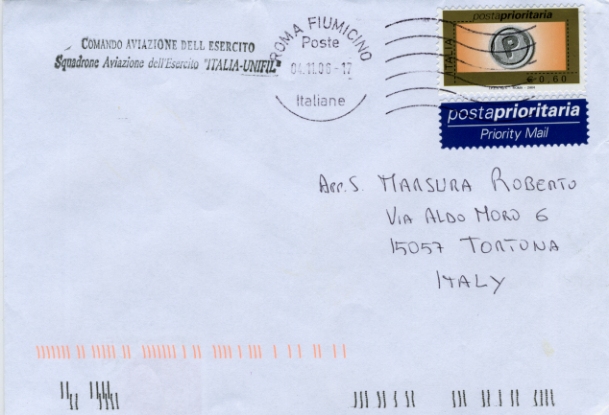 COMANDO AVIAZIONE DELL ESERCITO
Squadrone Aviazione dell'Esercito "ITALIA-UNIFIL"
ROMA FIUMICINO
Poste
04.11.08-17
Italiane
postaprioritaria
P
ITALIA
€0,60
postaprioritaria
Priority Mail
MARSURA ROBERTO
VIA ALDO MORO 6
15057 TORTONA
ITALY